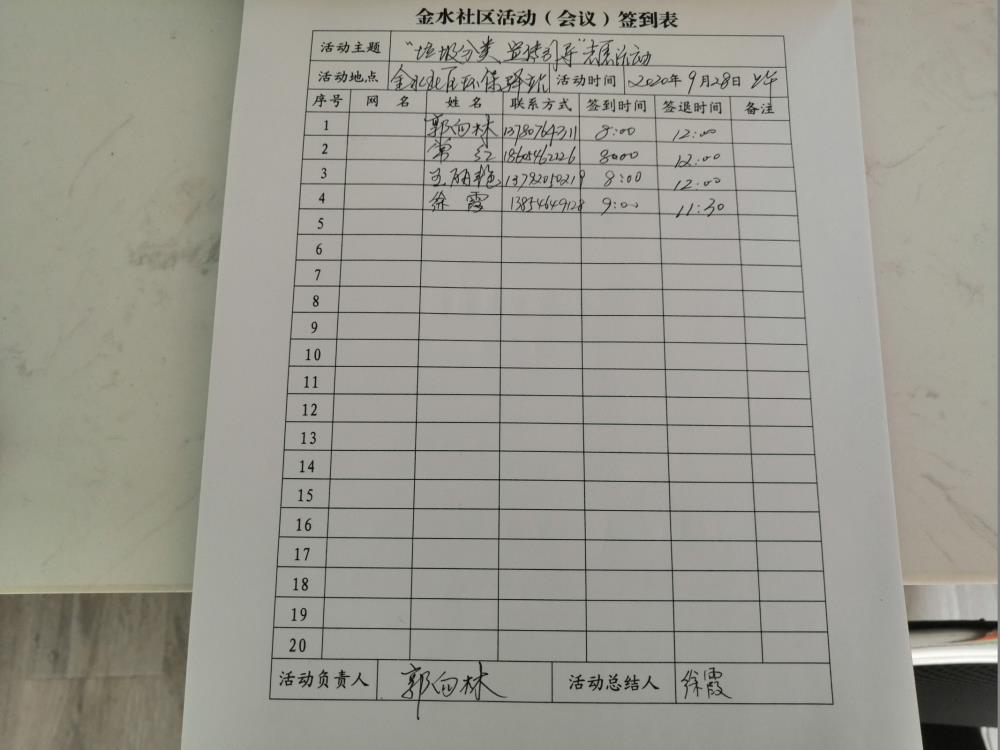 金水社区活动（会议）签到表
活动主题 "垃圾分类、宣传引导"志愿活动
活动地点 金水社区环保驿站 活动时间 2020年9月28日 上午
序号 网 名 姓 名 联系方式 签到时间 签退时间 备注
1 郭向林 13780764311 8:00 12:00
2 常 红 18605462226 8:00 12:00
3 王丽艳 13782050219 8:00 12:00
4 徐 霞 13854649128 9:00 11:30
5
6
7
8
9
10
11
12
13
14
15
16
17
18
19
20
活动负责人 郭向林 活动总结人 徐霞